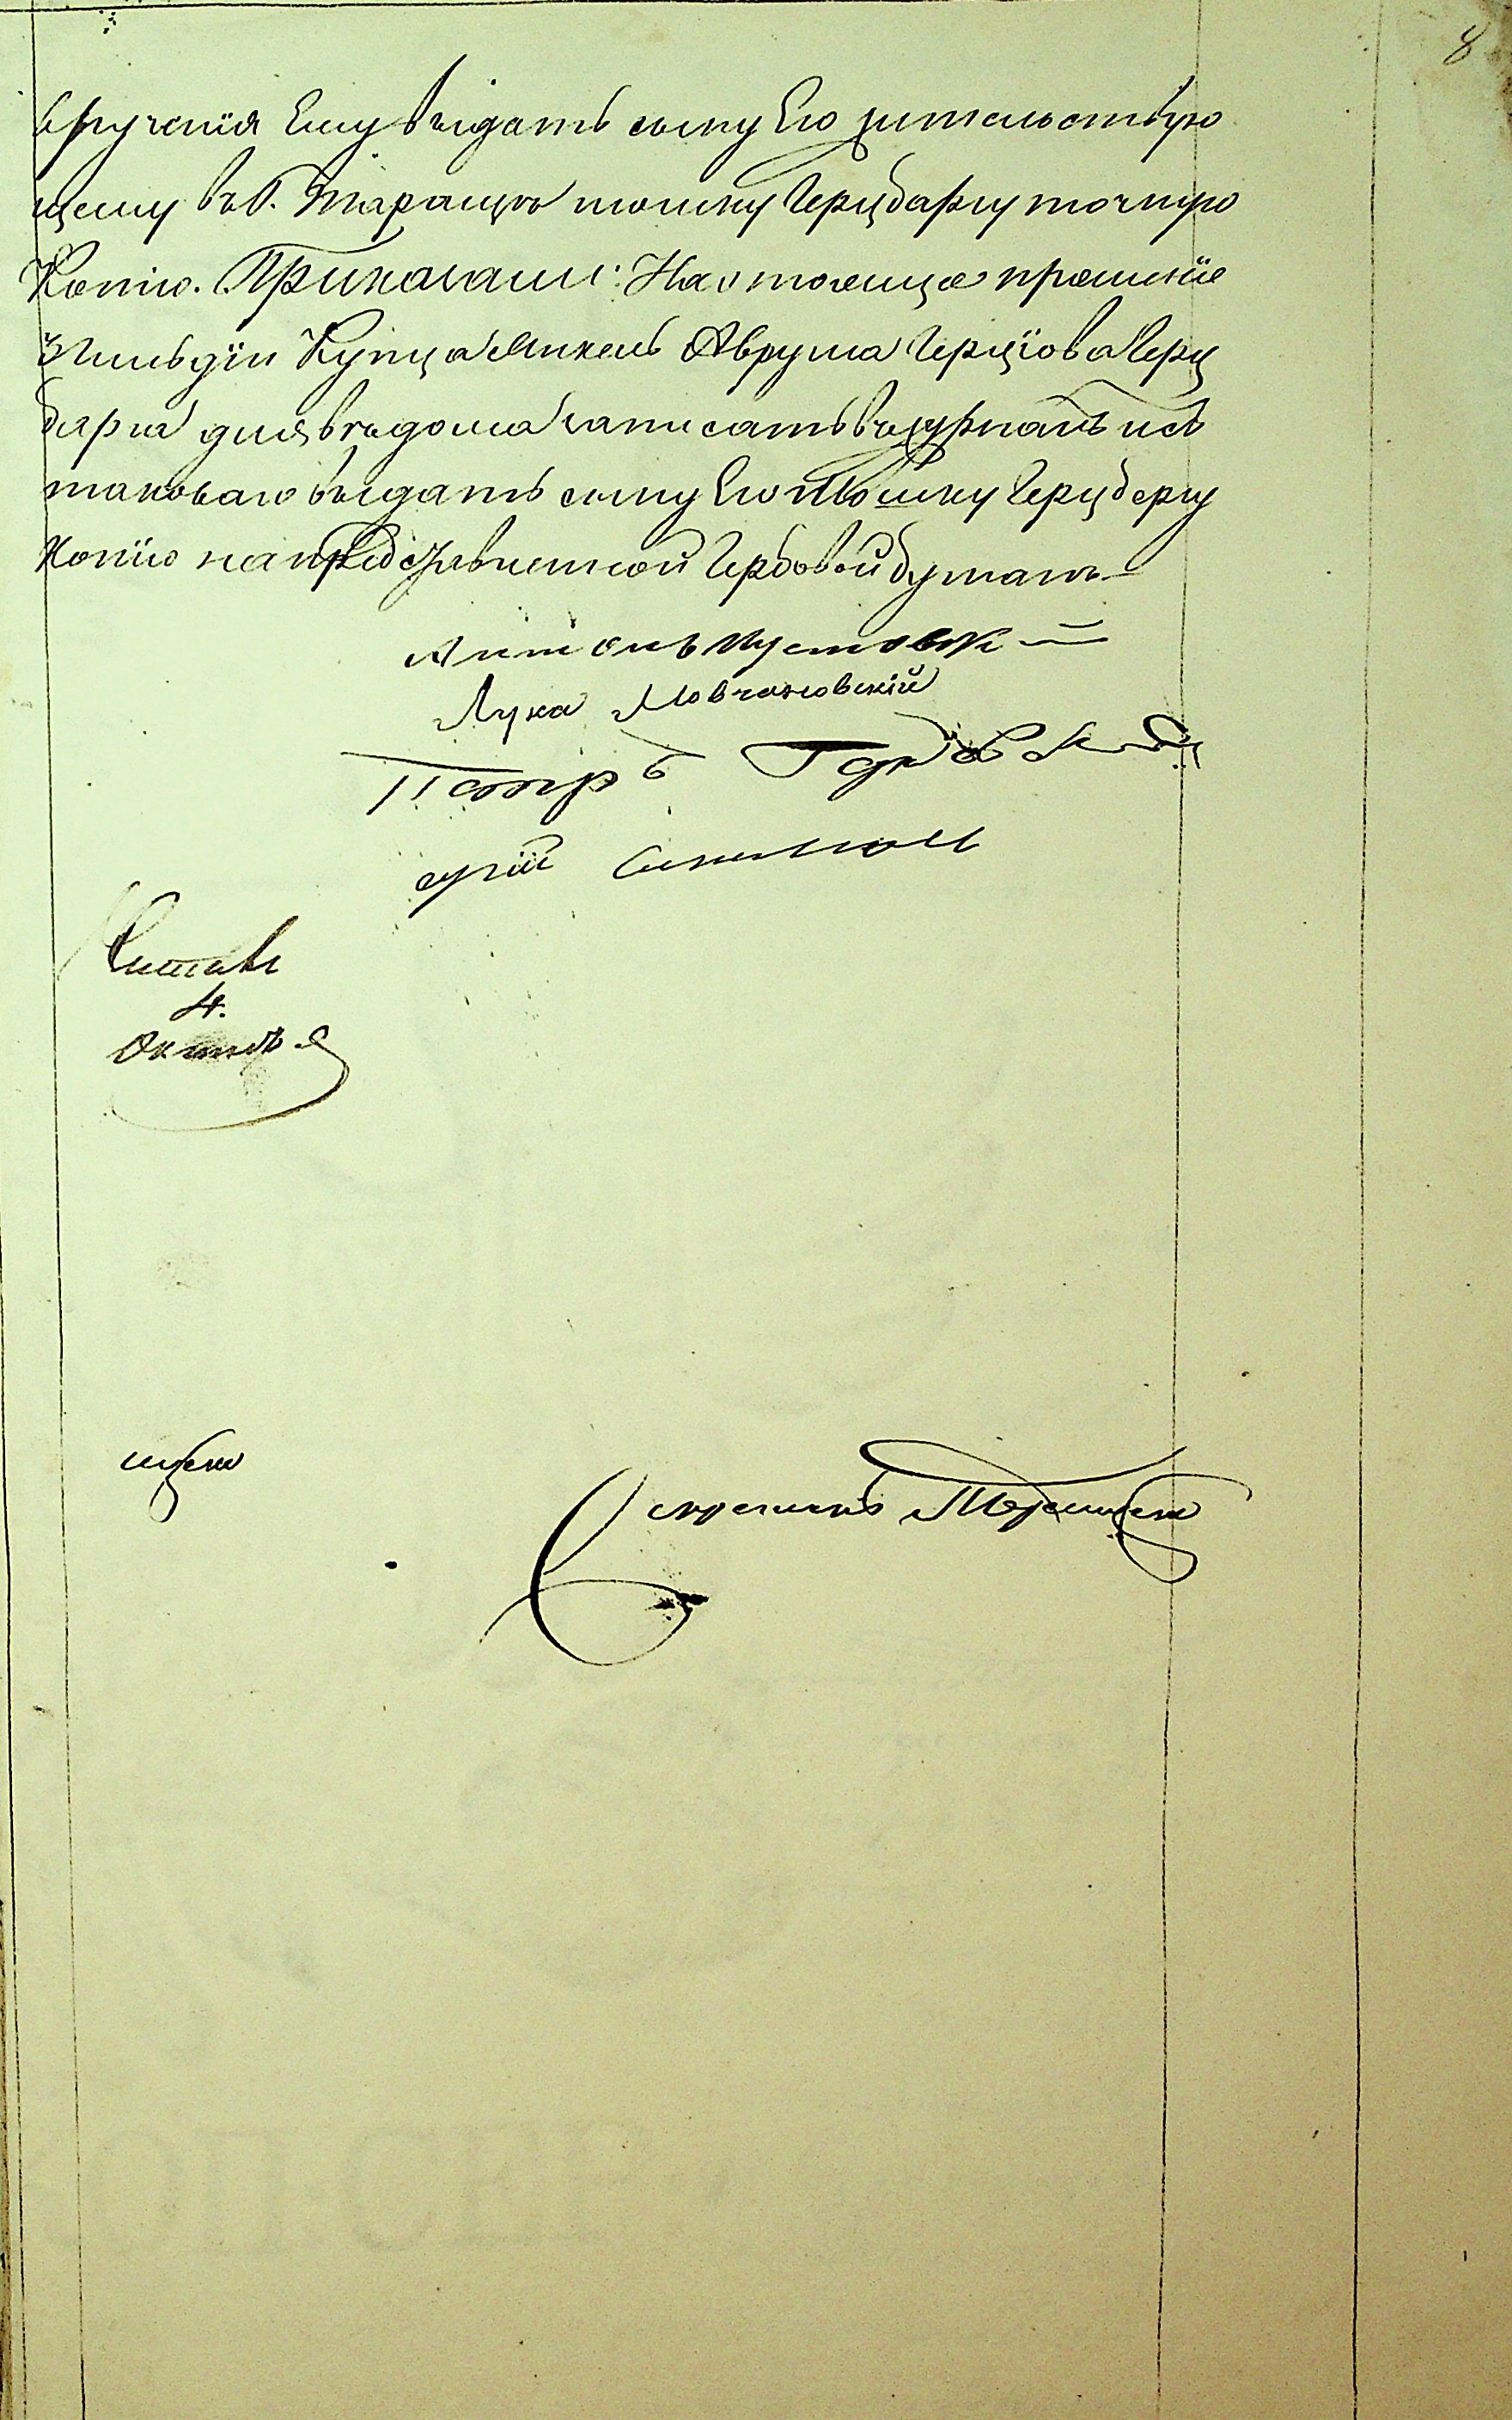 8
вручения Ему выдать сыну Его жительствую
щему въ г. Таращѣ мошку Герцбаргу точную
Копію. Приказали: Настоящее прошеніе
3 гильдіи Купца Янкель Аврума Герцова Герц
барга для вѣдома записать въ журналъ и съ
таковаго выдать сыну Его Мошку Герцбергу
Копію на представленной Гербовой бумагѣ
Антонъ Пустовой
Лука Мовчановскій
Петръ
Читалъ
4.
Октября